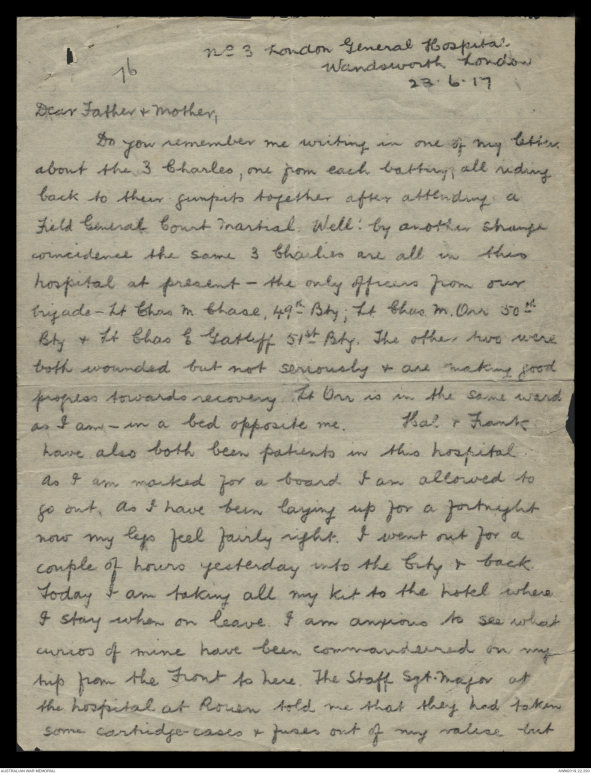 76
No 3 London General Hospital
Wandsworth London
23.6.17
Dear Father & Mother,
Do you remember me writing in one of my letters
about the 3 Charles, one from each battery, all riding
back to their gunpits together after attending a
Field General Court Martial. Well! by another strange
coincidence the same 3 Charlies are all in this
hospital at present – the only officers from our
brigade – Lt Chas M Chase, 49th Bty; Lt Chas. M. Orr 50th
Bty & Lt Chas E Gatliff 51st Bty. The other two were
both wounded but not seriously & are making good
progress towards recovery. Lt Orr is in the same ward
as I am – in a bed opposite me. Hal & Frank
have also both been patients in this hospital.
As I am marked for a board I am allowed to
go out. As I have been laying up for a fortnight
now my legs feel fairly right. I went out for a
couple of hours yesterday into the City & back.
Today I am taking all my kit to the hotel where
I stay when on leave. I am anxious to see what
curios of mine have been commandeered on my
trip from the Front to here. The Staff Sgt-Major at
the hospital at Rouen told me that they had taken
some cartridge-cases & fuses out of my valise but
AUSTRALIAN WAR MEMORIAL